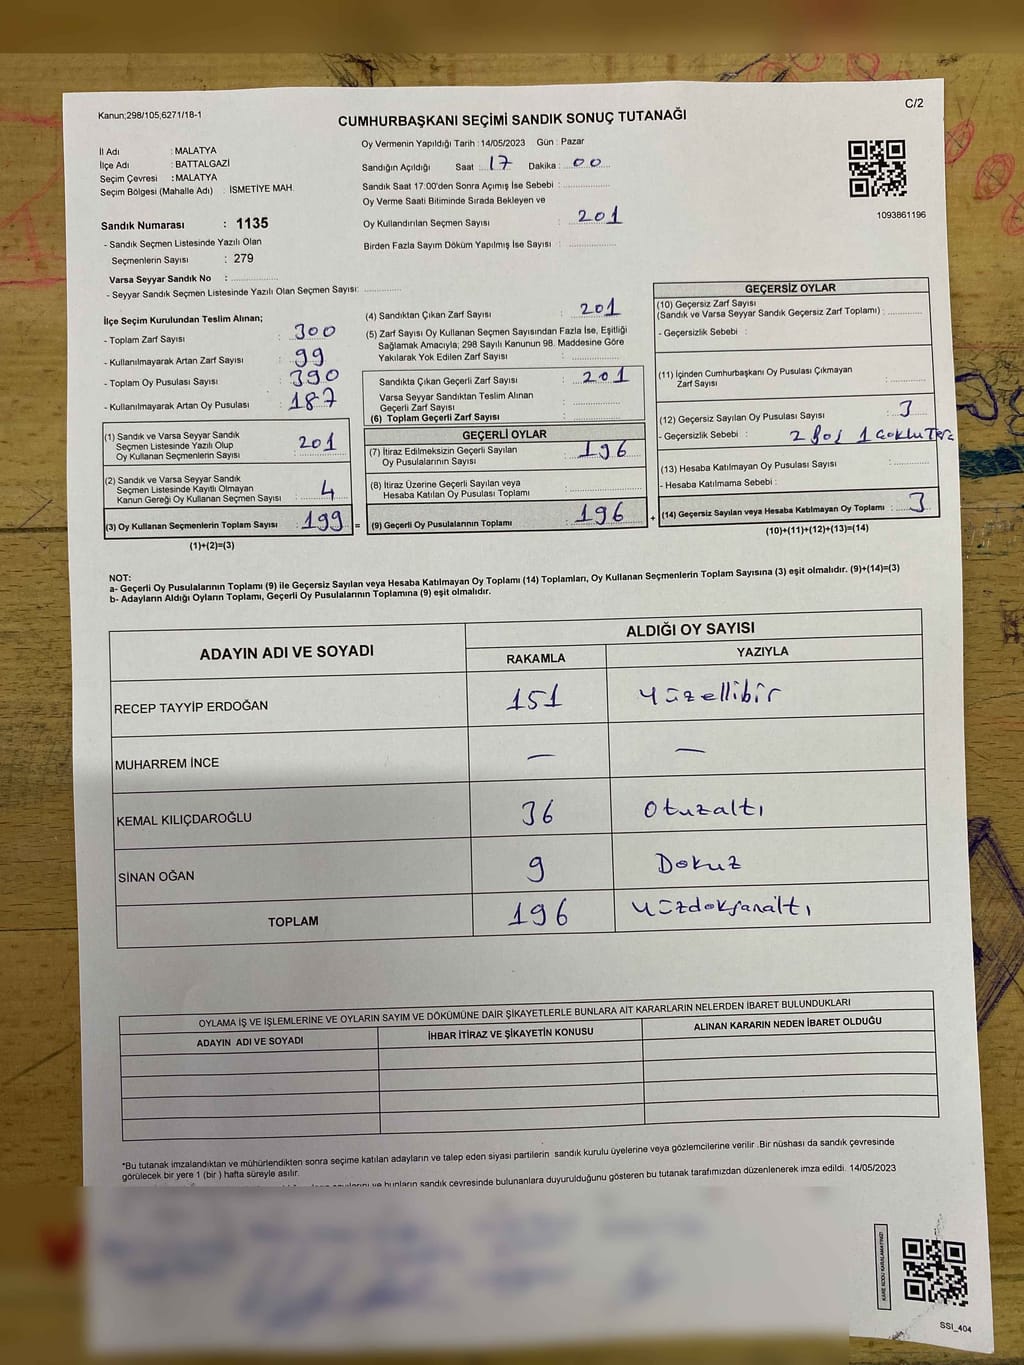 Kanun;298/105,6271/18-1
C/2
CUMHURBAŞKANI SEÇİMİ SANDIK SONUÇ TUTANAĞI
İl Adı : MALATYA
İlçe Adı : BATTALGAZİ
Seçim Çevresi : MALATYA
Seçim Bölgesi (Mahalle Adı) : İSMETİYE MAH.
Sandık Numarası : 1135
- Sandık Seçmen Listesinde Yazılı Olan
Seçmenlerin Sayısı : 279
Varsa Seyyar Sandık No :
- Seyyar Sandık Seçmen Listesinde Yazılı Olan Seçmen Sayısı:
Oy Vermenin Yapıldığı Tarih : 14/05/2023 Gün : Pazar
Sandığın Açıldığı Saat : 17 Dakika : 00
Sandık Saat 17:00'den Sonra Açımış İse Sebebi :
Oy Verme Saati Bitiminde Sırada Bekleyen ve
Oy Kullandırılan Seçmen Sayısı : 201
Birden Fazla Sayım Döküm Yapılmış İse Sayısı :
1093861196
İlçe Seçim Kurulundan Teslim Alınan;
- Toplam Zarf Sayısı : 300
- Kullanılmayarak Artan Zarf Sayısı : 99
- Toplam Oy Pusulası Sayısı : 390
- Kullanılmayarak Artan Oy Pusulası : 187
(1) Sandık ve Varsa Seyyar Sandık
Seçmen Listesinde Yazılı Olup
Oy Kullanan Seçmenlerin Sayısı : 201
(2) Sandık ve Varsa Seyyar Sandık
Seçmen Listesinde Kayıtlı Olmayan
Kanun Gereği Oy Kullanan Seçmen Sayısı : 4
(3) Oy Kullanan Seçmenlerin Toplam Sayısı : 199 =
(1)+(2)=(3)
(4) Sandıktan Çıkan Zarf Sayısı : 201
(5) Zarf Sayısı Oy Kullanan Seçmen Sayısından Fazla İse, Eşitliği
Sağlamak Amacıyla; 298 Sayılı Kanunun 98. Maddesine Göre
Yakılarak Yok Edilen Zarf Sayısı :
Sandıkta Çıkan Geçerli Zarf Sayısı : 201
Varsa Seyyar Sandıktan Teslim Alınan
Geçerli Zarf Sayısı :
(6) Toplam Geçerli Zarf Sayısı :
GEÇERLİ OYLAR
(7) İtiraz Edilmeksizin Geçerli Sayılan
Oy Pusulalarının Sayısı : 196
(8) İtiraz Üzerine Geçerli Sayılan veya
Hesaba Katılan Oy Pusulası Toplamı :
(9) Geçerli Oy Pusulalarının Toplamı : 196 +
GEÇERSİZ OYLAR
(10) Geçersiz Zarf Sayısı
(Sandık ve Varsa Seyyar Sandık Geçersiz Zarf Toplamı) :
- Geçersizlik Sebebi :
(11) İçinden Cumhurbaşkanı Oy Pusulası Çıkmayan
Zarf Sayısı :
(12) Geçersiz Sayılan Oy Pusulası Sayısı : 3
- Geçersizlik Sebebi : 2 Boş 1
(13) Hesaba Katılmayan Oy Pusulası Sayısı :
- Hesaba Katılmama Sebebi :
(14) Geçersiz Sayılan veya Hesaba Katılmayan Oy Toplamı : 3
(10)+(11)+(12)+(13)=(14)
NOT:
a- Geçerli Oy Pusulalarının Toplamı (9) ile Geçersiz Sayılan veya Hesaba Katılmayan Oy Toplamı (14) Toplamları, Oy Kullanan Seçmenlerin Toplam Sayısına (3) eşit olmalıdır. (9)+(14)=(3)
b- Adayların Aldığı Oyların Toplamı, Geçerli Oy Pusulalarının Toplamına (9) eşit olmalıdır.
ADAYIN ADI VE SOYADI
ALDIĞI OY SAYISI
RAKAMLA YAZIYLA
RECEP TAYYİP ERDOĞAN 151 Yüzellibir
MUHARREM İNCE — —
KEMAL KILIÇDAROĞLU 36 Otuzaltı
SİNAN OĞAN 9 Dokuz
TOPLAM 196 Yüzdoksanaltı
OYLAMA İŞ VE İŞLEMLERİNE VE OYLARIN SAYIM VE DÖKÜMÜNE DAİR ŞİKAYETLERLE BUNLARA AİT KARARLARIN NELERDEN İBARET BULUNDUKLARI
ADAYIN ADI VE SOYADI İHBAR İTİRAZ VE ŞİKAYETİN KONUSU ALINAN KARARIN NEDEN İBARET OLDUĞU
*Bu tutanak imzalandıktan ve mühürlendikten sonra seçime katılan adayların ve talep eden siyasi partilerin sandık kurulu üyelerine veya gözlemcilerine verilir .Bir nüshası da sandık çevresinde
görülecek bir yere 1 (bir ) hafta süreyle asılır.
ve bunların sandık çevresinde bulunanlara duyurulduğunu gösteren bu tutanak tarafımızdan düzenlenerek imza edildi. 14/05/2023
KARE KODU KARALAMAYINIZ!
SSI_404